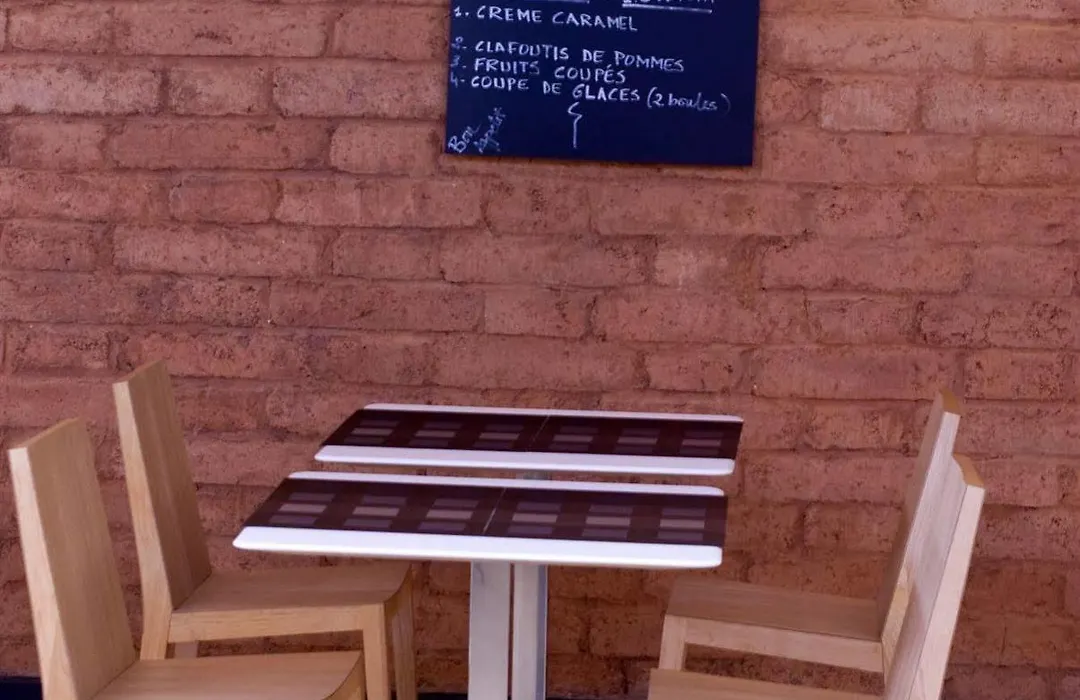 1. CREME CARAMEL
2. CLAFOUTIS DE POMMES
3. FRUITS COUPÉS
4- COUPE DE GLACES (2 boules)
Bon